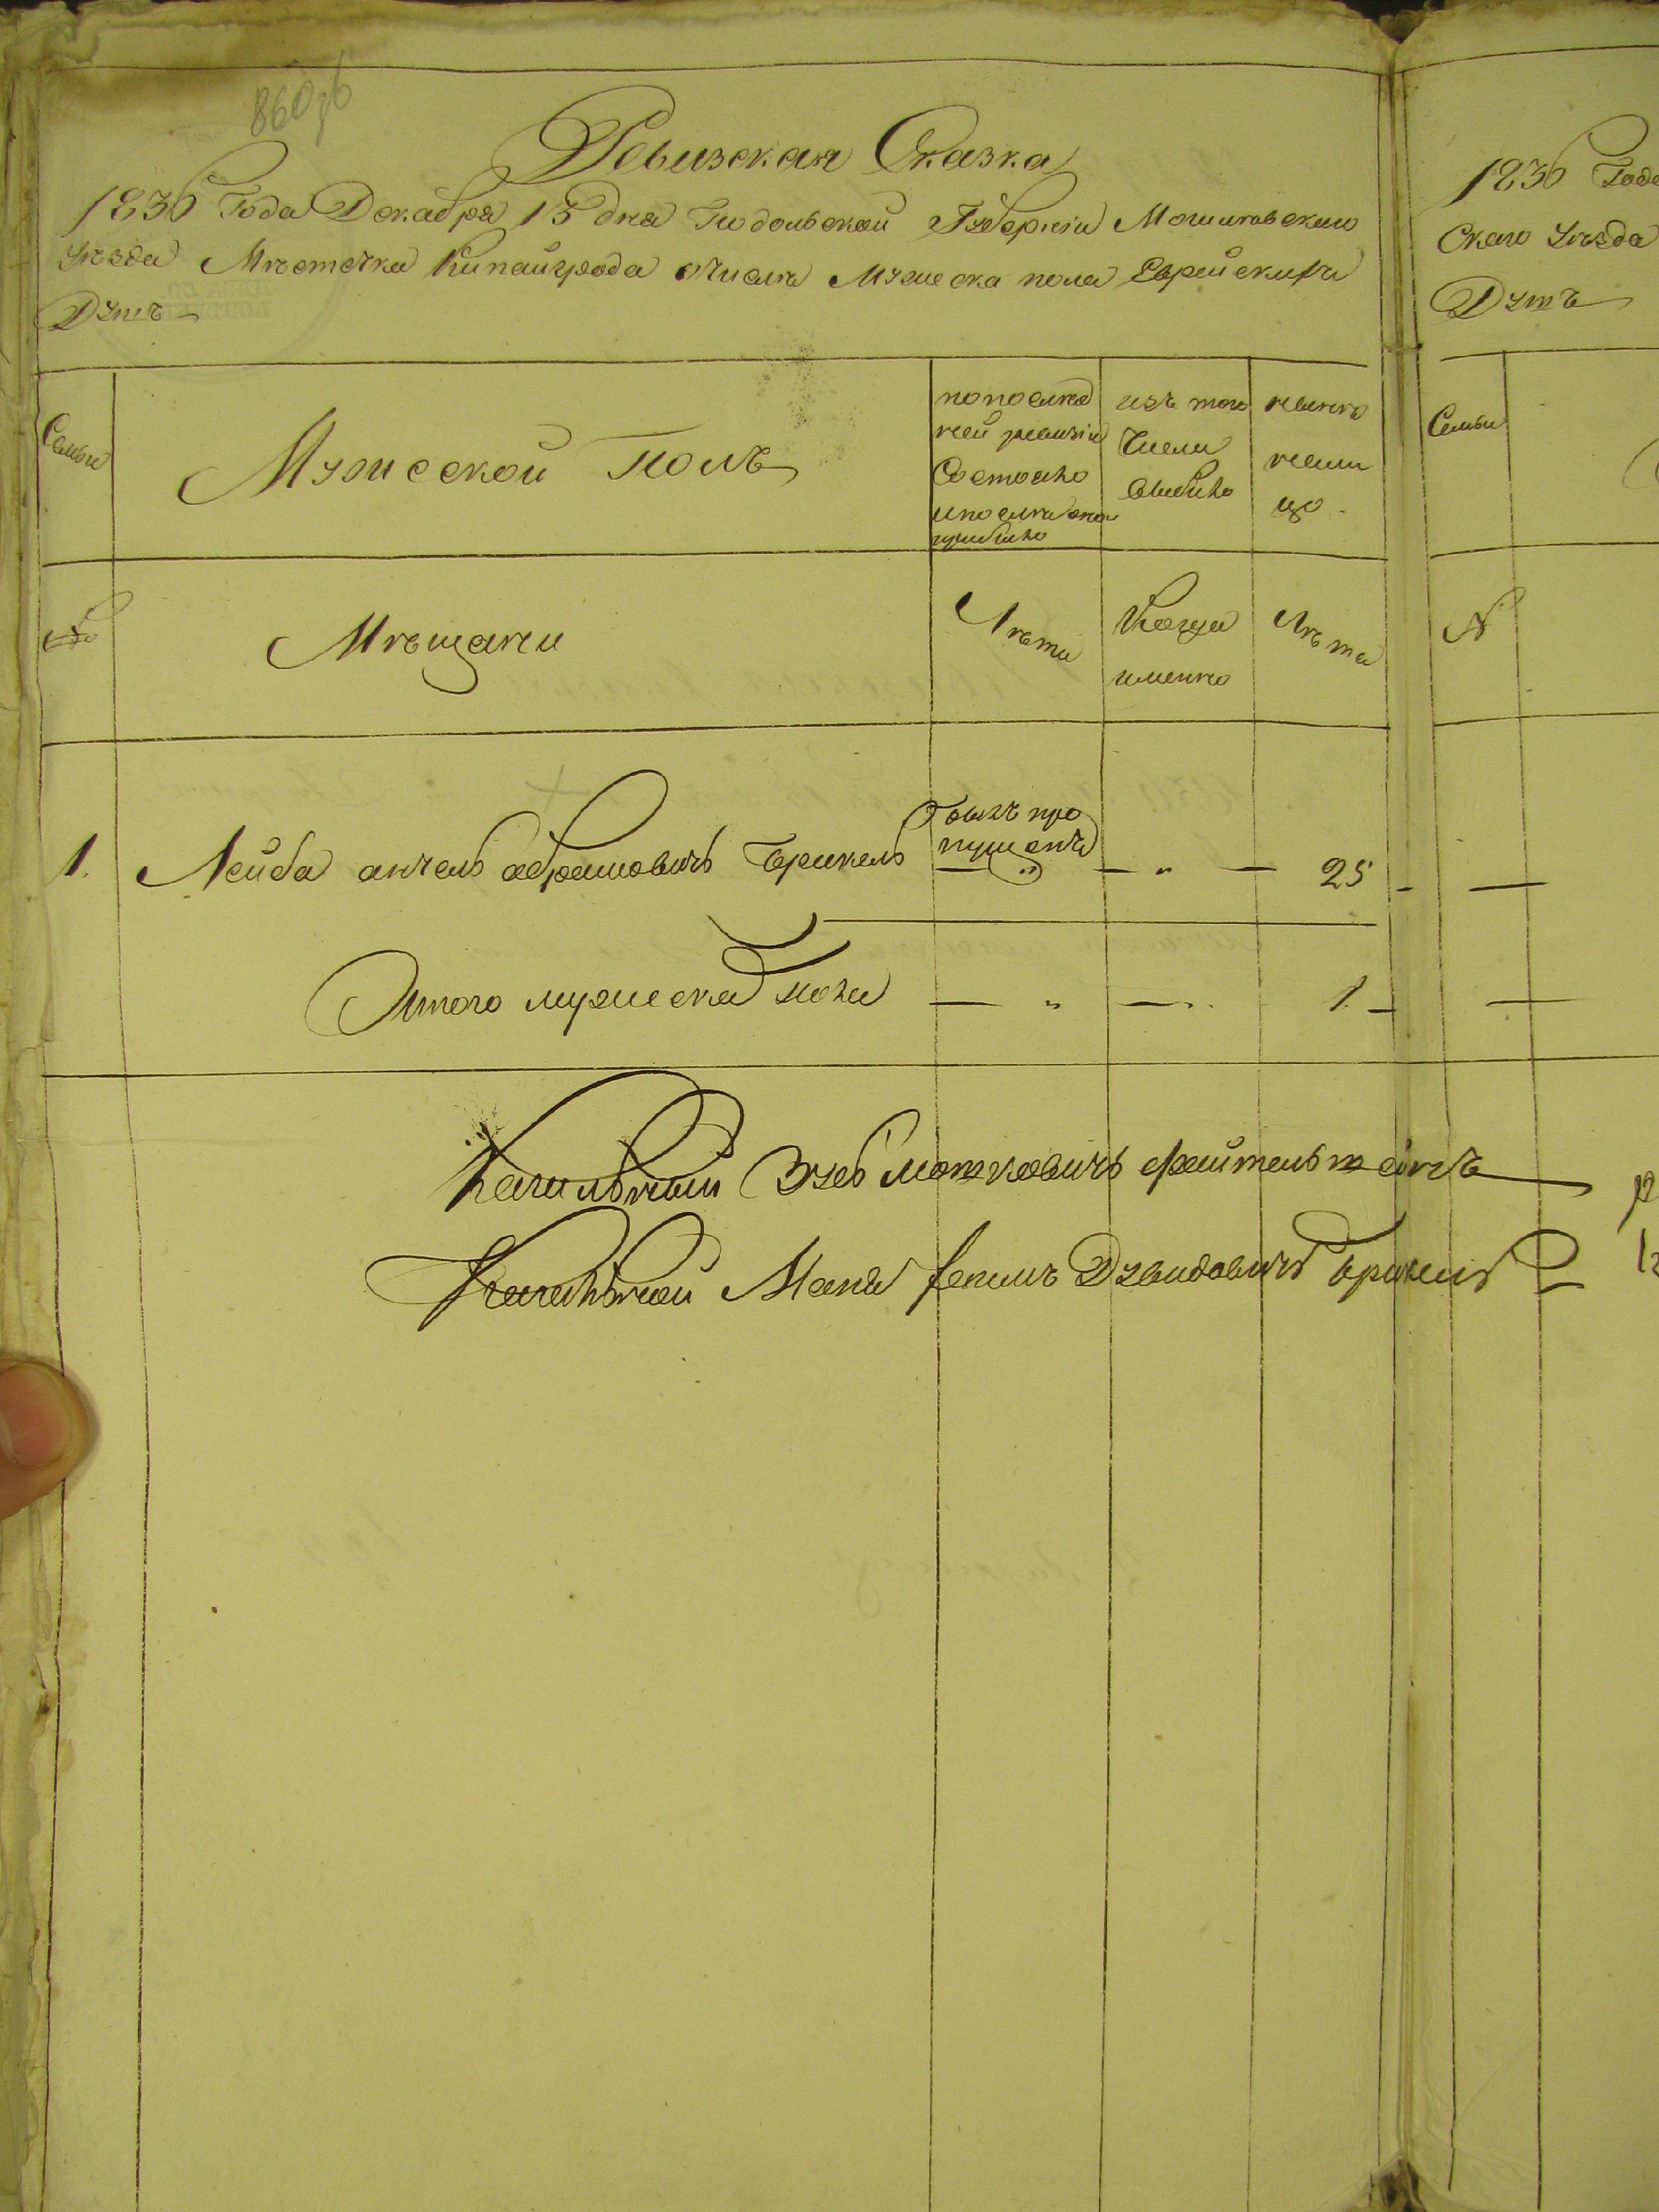 860
Ревизская Сказка
1836 Года Декабря 15 дня Подольской Губерніи Могилевскаго
уѣзда Мѣстечка Копайгрода о числѣ Мужеска пола Еврейскихъ
Душъ
Семьи
Мужескои Полъ
по послѣд
ней ревизіи
Состояло
и после оной
прибыло
изъ того
Числа
Выбыло
нынѣ
на ли
цо
№
Мѣщани
Лѣта
Когда
именно
Лѣта
1.
Лейба анчель абрамовичъ Брикель
былъ про
пущенъ
25
Итого мужеска пола
1
Кагальный Зусь Мошковичъ
Кагальной Давидовичъ Брикель
1836 Года
Скаго уѣзда
Душъ
Семьи
№